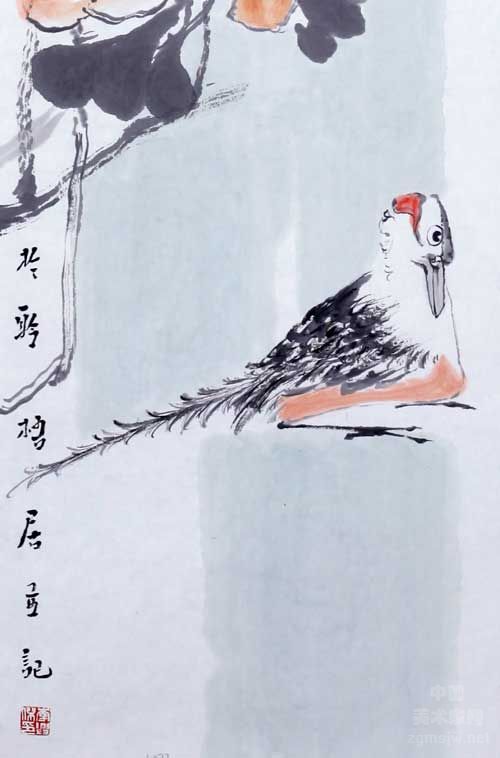 於聆梧居亚記
中国
美术家网
zgmsjw.net